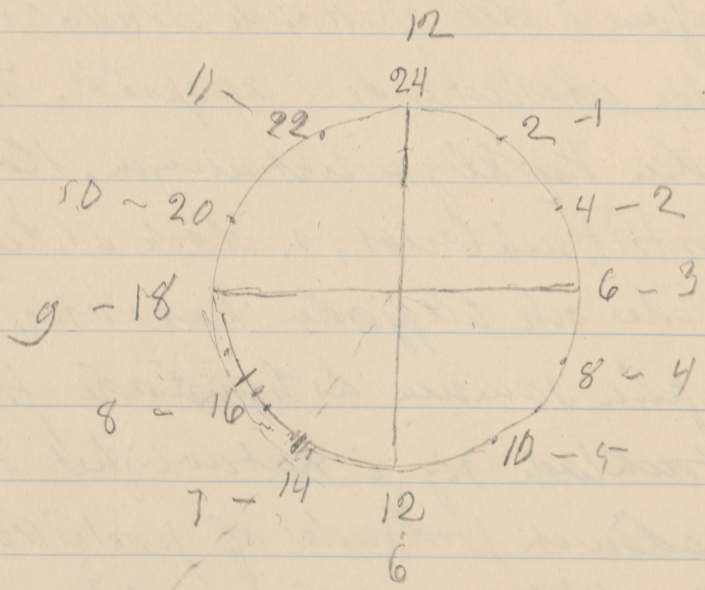 12
24
11 - 22
2 - 1
10 - 20
4 - 2
9 - 18
6 - 3
8 - 4
8 - 16
10 - 5
7 - 14
12
6